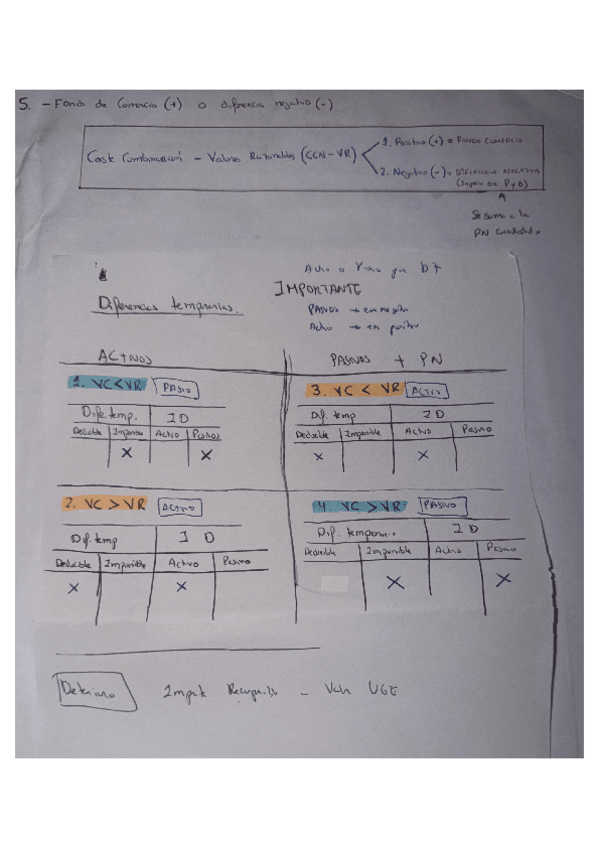 5. - Fondo de Comercio (+) o diferencia negativa (-)
Coste Combinación - Valores Razonables (CCN-VR)
1. Positiva (+) = Fondo Comercio
2. Negativa (-) = Diferencia Negativa
(Ingreso en PyG)
Se suma a
PN
Activo o
IMPORTANTE
Diferencias temporarias.
Pasivos → en negativo
Activo → en positivo
ACTIVOS
PASIVOS + PN
1. VC<VR PASIVO
Dife. temp. ID
Deducible Imponible Activo Pasivos
X X
3. VC < VR ACTIVO
Dif. temp ID
Deducible Imponible Activo Pasivo
X X
2. VC > VR ACTIVO
Dif. temp ID
Deducible Imponible Activo Pasivo
X X
4. VC > VR PASIVO
Dif. temporaria ID
Deducible Imponible Activo Pasivo
X X
Deterioro Import - Valor UGE